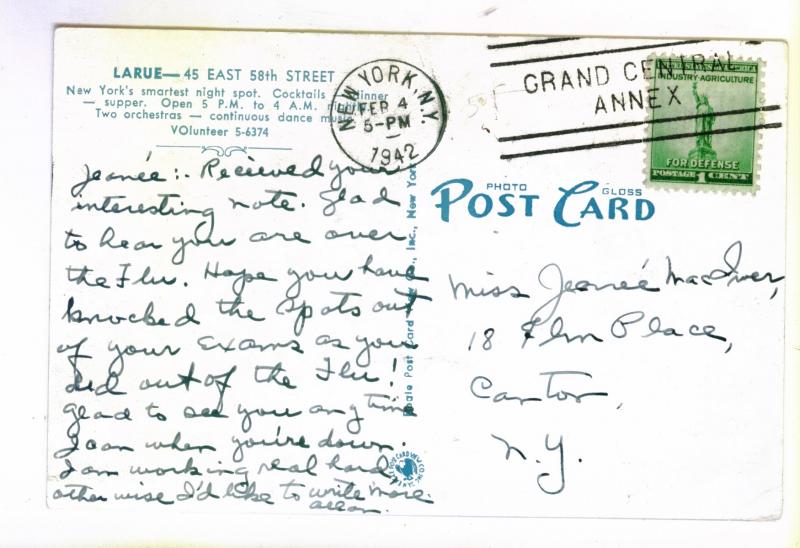 LARUE— 45 EAST 58th STREET
New York's smartest night spot. Cocktails dinner
— supper. Open 5 P.M. to 4 A.M. nightly
Two orchestras — continuous dance music
VOlunteer 5-6374
NEW YORK, N.Y.
FEB 4
5-PM
1942
GRAND CENTRAL
ANNEX
UNITED STATES OF AMERICA
INDUSTRY-AGRICULTURE
FOR DEFENSE
POSTAGE 1 CENT
Jeanée:- Recieved your
interesting note. Glad
to hear you are over
the Flu. Hope you have
knocked the spots out
of your exams as you
did out of the Flu!
Glad to see you any time
Joan when you're down.
I am working real hard
other wise I'd like to write more.
PHOTO GLOSS
POST CARD
Miss Jeaneé MacIver,
18 Elm Place,
Canton,
N.Y.
Post Card Co., Inc., New York